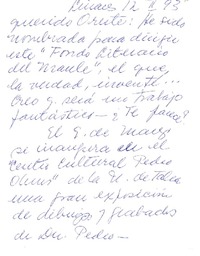 Linares 12 II 93
querido Oreste: he sido
nombrada para dirigir
este "Fondo Literario
del Maule", el que,
la verdad, inventé...
Creo q. será un trabajo
fantástico — ¿Te parece?
El 9. de Marzo
se inaugura en el
Centro Cultural Pedro
Olmos" de la U. de Talca
una gran exposición
de dibujos y grabados
de Don Pedro —